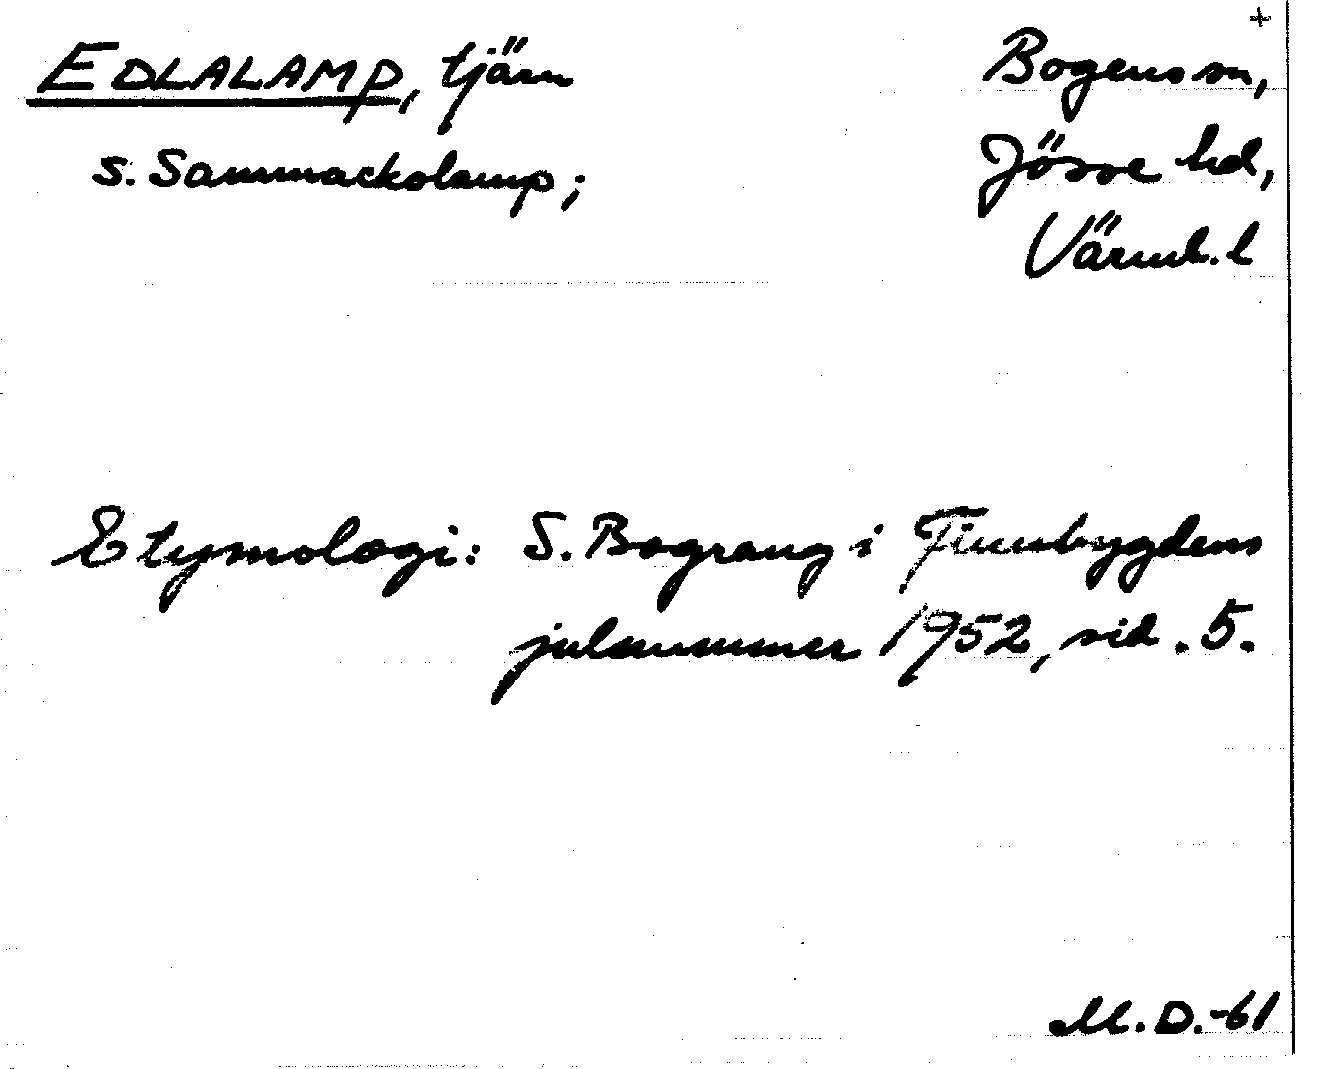 +
EDLALAMP, tjärn
Bogens sn,
s. Sammackolamp;
Jösse hd,
Värml. l
Etymologi: S. Bograng i Finnbygdens
julnummer 1952, sid. 5.
M.D.-61